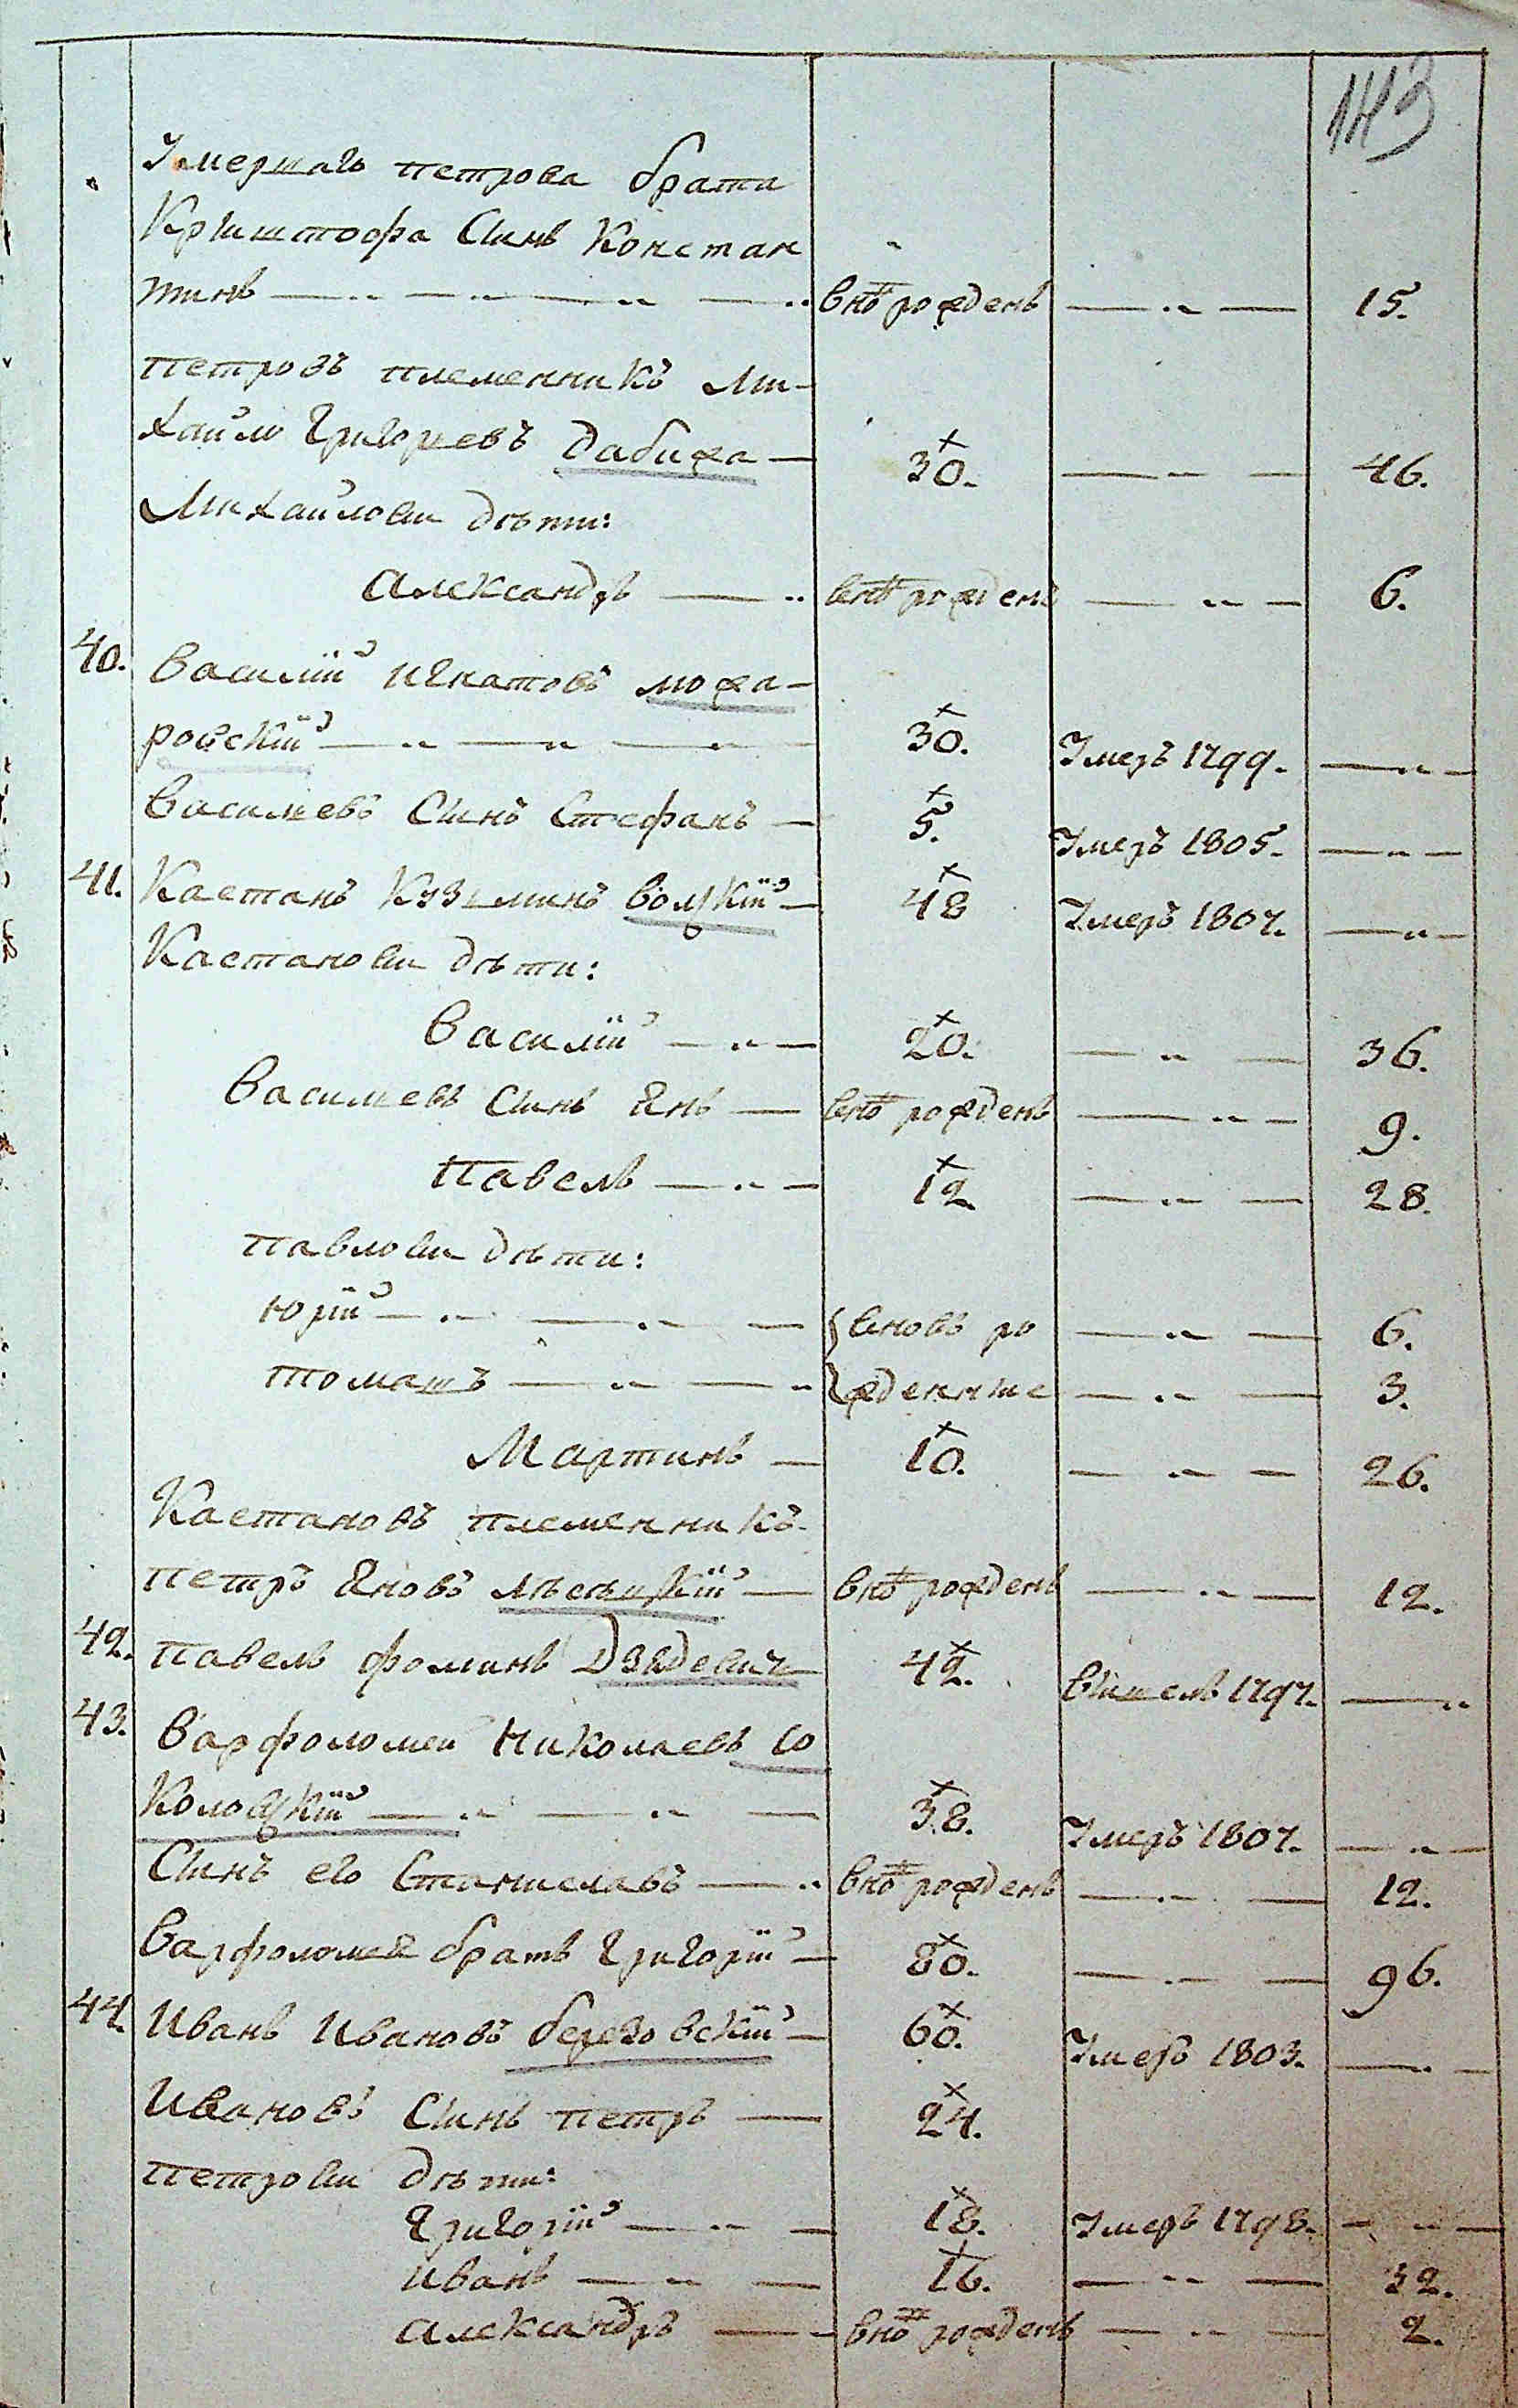 143
Умершагъ петрова брата
Криштофа Синъ Констан
тинъ внѣ рожденъ 15.
петровъ племенникъ Ми-
хайло Григоревъ Дабижа 30. 46.
Михайлови дѣти:
Александръ внѣ рожденъ 6.
40. Василій Игнатовъ можа-
ровскій 30. Умеръ 1799.
Василевъ Синъ Стефанъ 5. Умеръ 1805.
41. Каетанъ Кузминъ волскій 48 Умеръ 1807.
Каетанови дѣти:
Василій 20. 36.
Василевъ Синъ Янъ внѣ рожденъ 9.
Павелъ 12 28.
Павлови дѣти:
Юрій вновъ ро 6.
Томашъ жденние 3.
Мартинъ 10. 26.
Каетановъ племенникъ
Петръ Яновъ внѣ рожденъ 12.
42. Павелъ Фоминъ Дзядевич 42. вишелъ 1797.
43. Варфоломей Николаевъ Со
коловскій 38. Умеръ 1807.
Синъ его Станиславъ внѣ рожденъ 12.
Варфоломея братъ Григорій 80. 96.
44. Иванъ Ивановъ березовскій 60. Умеръ 1803.
Ивановъ Синъ петръ 24.
Петрови дѣти:
Григорій 18. Умеръ 1798.
Иванъ 16. 32.
Александръ внѣ рожденъ 2.